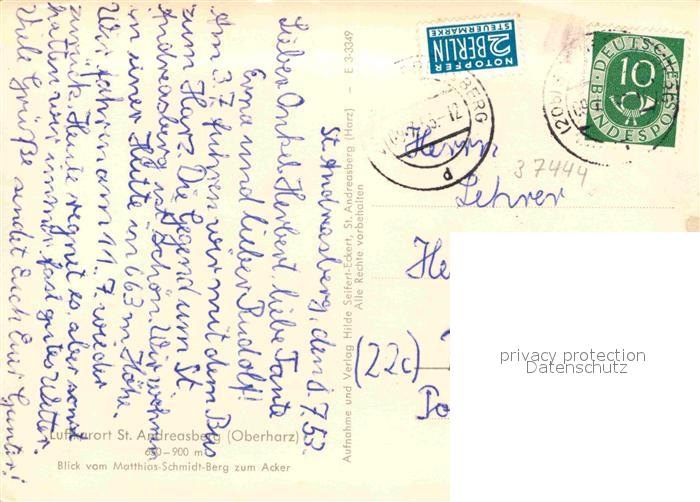 St. Andreasberg, den 8.7.53.
Lieber Onkel Herbert, liebe Tante
Erna und lieber Rudolf!
Am 3.7. fuhren wir mit dem Bus
zum Harz. Die Gegend um St.
Andreasberg ist schön. Wir wohnen
in einer Hütte in 663 m Höhe.
Wir fahren am 11.7. wieder
zurück. Heute regnet es, aber sonst
hatten wir immer fast gutes Wetter.
Viele Grüße sendet Euch Euer Günter!
Luftkurort St. Andreasberg (Oberharz)
600-900 m
Blick vom Matthias-Schmidt-Berg zum Acker
Aufnahme und Verlag Hilde Seifert-Eckert, St. Andreasberg (Harz) - E 3-3349
Alle Rechte vorbehalten
NOTOPFER
2 BERLIN
STEUERMARKE
DEUTSCHE
10
BUNDESPOST
BERG
-12
Herrn
37444
Lehrer
(22c)
privacy protection
Datenschutz